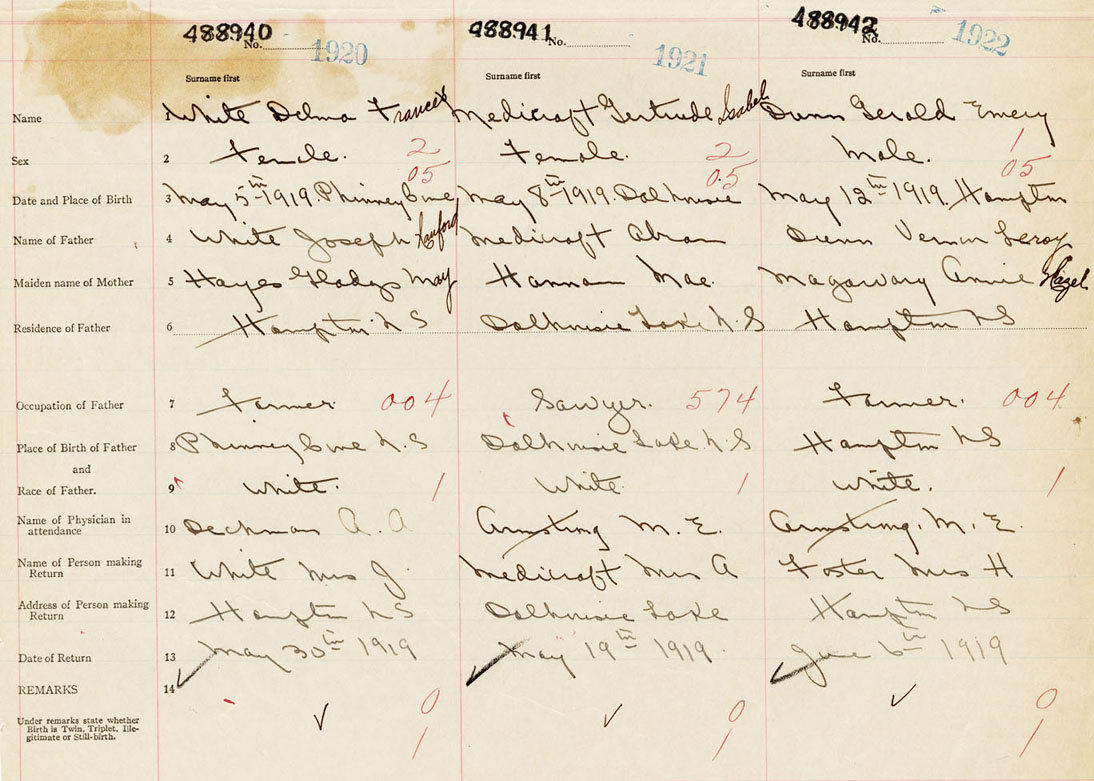 488940 488941 488942
No. 1920 No. 1921 No. 1922
Surname first Surname first Surname first
Name 1 White Delma Frances Medicraft Gertrude Isabel Dunn Gerald Emery
Sex 2 Female. 2 Female. 2 Male. 1
05 05 05
Date and Place of Birth 3 May 5th 1919. Phinney Cove May 8th 1919. Dalhousie May 12th 1919. Hampton
Name of Father 4 White Joseph Medicraft Abram Dunn Vernon Leroy
Maiden name of Mother 5 Hayes Gladys May Hannam Mae. Magarvary Annie Hazel
Residence of Father 6 Hampton N S Dalhousie Lake N. S Hampton N S
Occupation of Father 7 Farmer. 004 Sawyer. 574 Farmer. 004
Place of Birth of Father 8 Phinney Cove N. S Dalhousie Lake N. S Hampton N S
and
Race of Father. 9 White. 1 White 1 White. 1
Name of Physician in
attendance 10 Deckman A. A Armstrong M. E. Armstrong. M. E.
Name of Person making
Return 11 White Mrs J. Medicraft Mrs A Foster Mrs H
Address of Person making
Return 12 Hampton N S Dalhousie Lake Hampton N S
Date of Return 13 May 30th 1919 May 19th 1919. June 6th 1919
REMARKS 14
0 0 0
Under remarks state whether
Birth is Twin, Triplet, Ille-
gitimate or Still-birth.
1 1 1